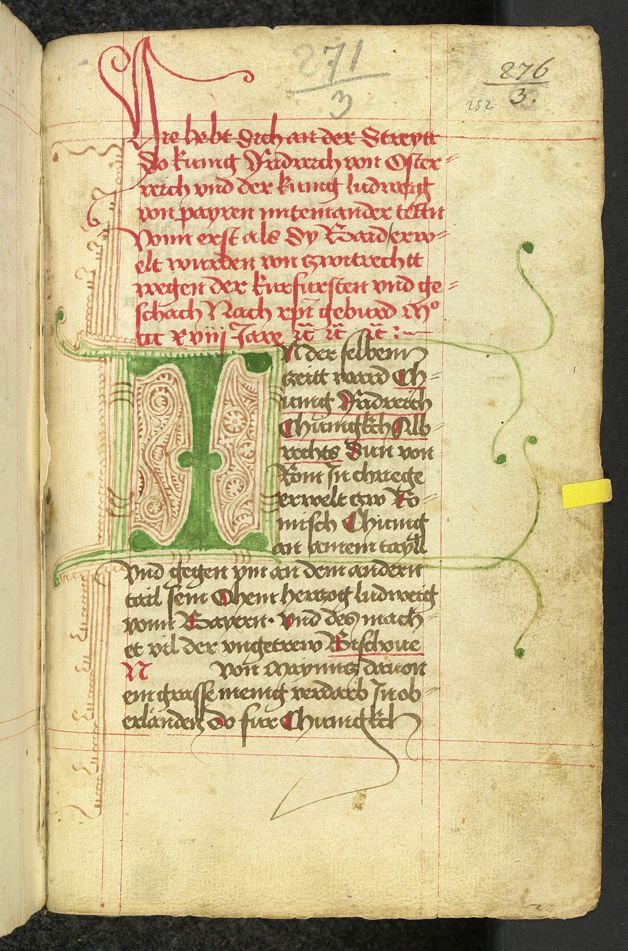 271
3
876
3.
252
Hie hebt sich an der Streytt
So kunig Fridreich von Oster=
reich vnd der kunig ludweyg
von payren miteinander teten
Vonn erst als Sy Baid erwo=
elt wurden von zwitrecht
wegen der kurfursten vnd ge=
schach Nach xpi geburd Mo
ccc xviij Jare
IN der selbenn
zeitt ward Ch=
unig Fridreich
Chunigkch Alb=
rechts Sun von
Rom In chriege
erwelt czw Ro=
misch Chunig
an ainem tayll
vnd gegen ym an dem andern
tail sein Ohem hertzog ludweig
vonn Bayern. vnd des mach=
et vil der vngetrew Bischoue
N von Mayntz dauon
ein grosse menig verdarb In ob=
erlanden Do fur Chunigkch